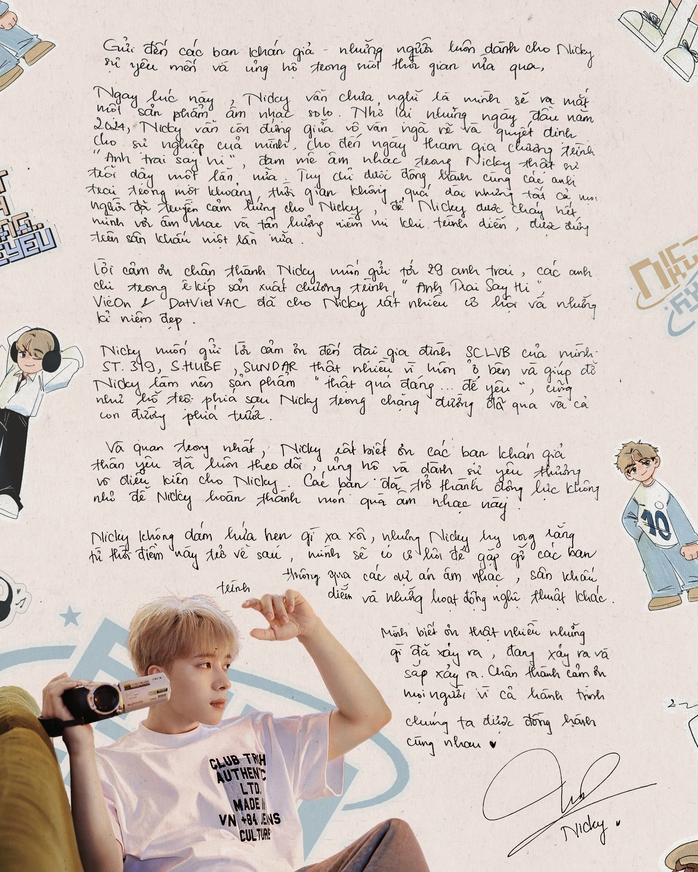 Gửi đến các bạn khán giả - những người luôn dành cho Nicky
sự yêu mến và ủng hộ trong suốt thời gian vừa qua,
Ngay lúc này, Nicky vẫn chưa nghĩ là mình sẽ ra mắt
một sản phẩm âm nhạc solo. Nhớ lại những ngày đầu năm
2024, Nicky vẫn còn đứng giữa vô vàn ngã rẽ và quyết định
cho sự nghiệp của mình. Cho đến ngày tham gia chương trình
"Anh trai say hi", đam mê âm nhạc trong Nicky thật sự
trỗi dậy một lần nữa. Tuy chỉ được đồng hành cùng các anh
trai trong một khoảng thời gian không quá dài nhưng tất cả mọi
người đã truyền cảm hứng cho Nicky, để Nicky được cháy hết
mình với âm nhạc và tận hưởng niềm vui khi trình diễn, được đứng
trên sân khấu một lần nữa.
Lời cảm ơn chân thành Nicky muốn gửi tới 29 anh trai, các anh
chị trong ê kíp sản xuất chương trình "Anh Trai Say Hi"
VieOn & DatVietVAC đã cho Nicky rất nhiều cơ hội và những
kỉ niệm đẹp.
Nicky muốn gửi lời cảm ơn đến đại gia đình SCLVB của mình
ST.319, SHUBE, SUNDAR thật nhiều vì luôn ở bên và giúp đỡ
Nicky làm nên sản phẩm "thật quá đáng... để yêu", cũng
như hỗ trợ phía sau Nicky trong chặng đường đã qua và cả
con đường phía trước.
Và quan trọng nhất, Nicky rất biết ơn các bạn khán giả
thân yêu đã luôn theo dõi, ủng hộ và dành sự yêu thương
vô điều kiện cho Nicky. Các bạn đã trở thành động lực không
nhỏ để Nicky hoàn thành món quà âm nhạc này.
Nicky không dám hứa hẹn gì xa xôi, nhưng Nicky hy vọng rằng
từ thời điểm này trở về sau, mình sẽ có cơ hội để gặp gỡ các bạn
thông qua các dự án âm nhạc, sân khấu
trình diễn và những hoạt động nghệ thuật khác.
Mình biết ơn thật nhiều những
gì đã xảy ra, đang xảy ra và
sắp xảy ra. Chân thành cảm ơn
mọi người vì cả hành trình
chúng ta được đồng hành
cùng nhau ♥
Nicky
CLUB TRSH
AUTHENTC
LTD.
MADE IN
VN +84 JENS
CULTURE
10